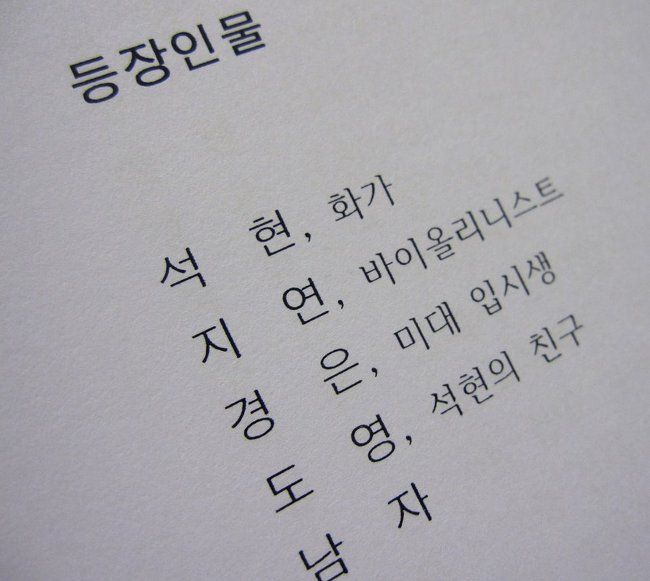 등장인물
석 현, 화가
지 연, 바이올리니스트
경 은, 미대 입시생
도 영, 석현의 친구
남 자